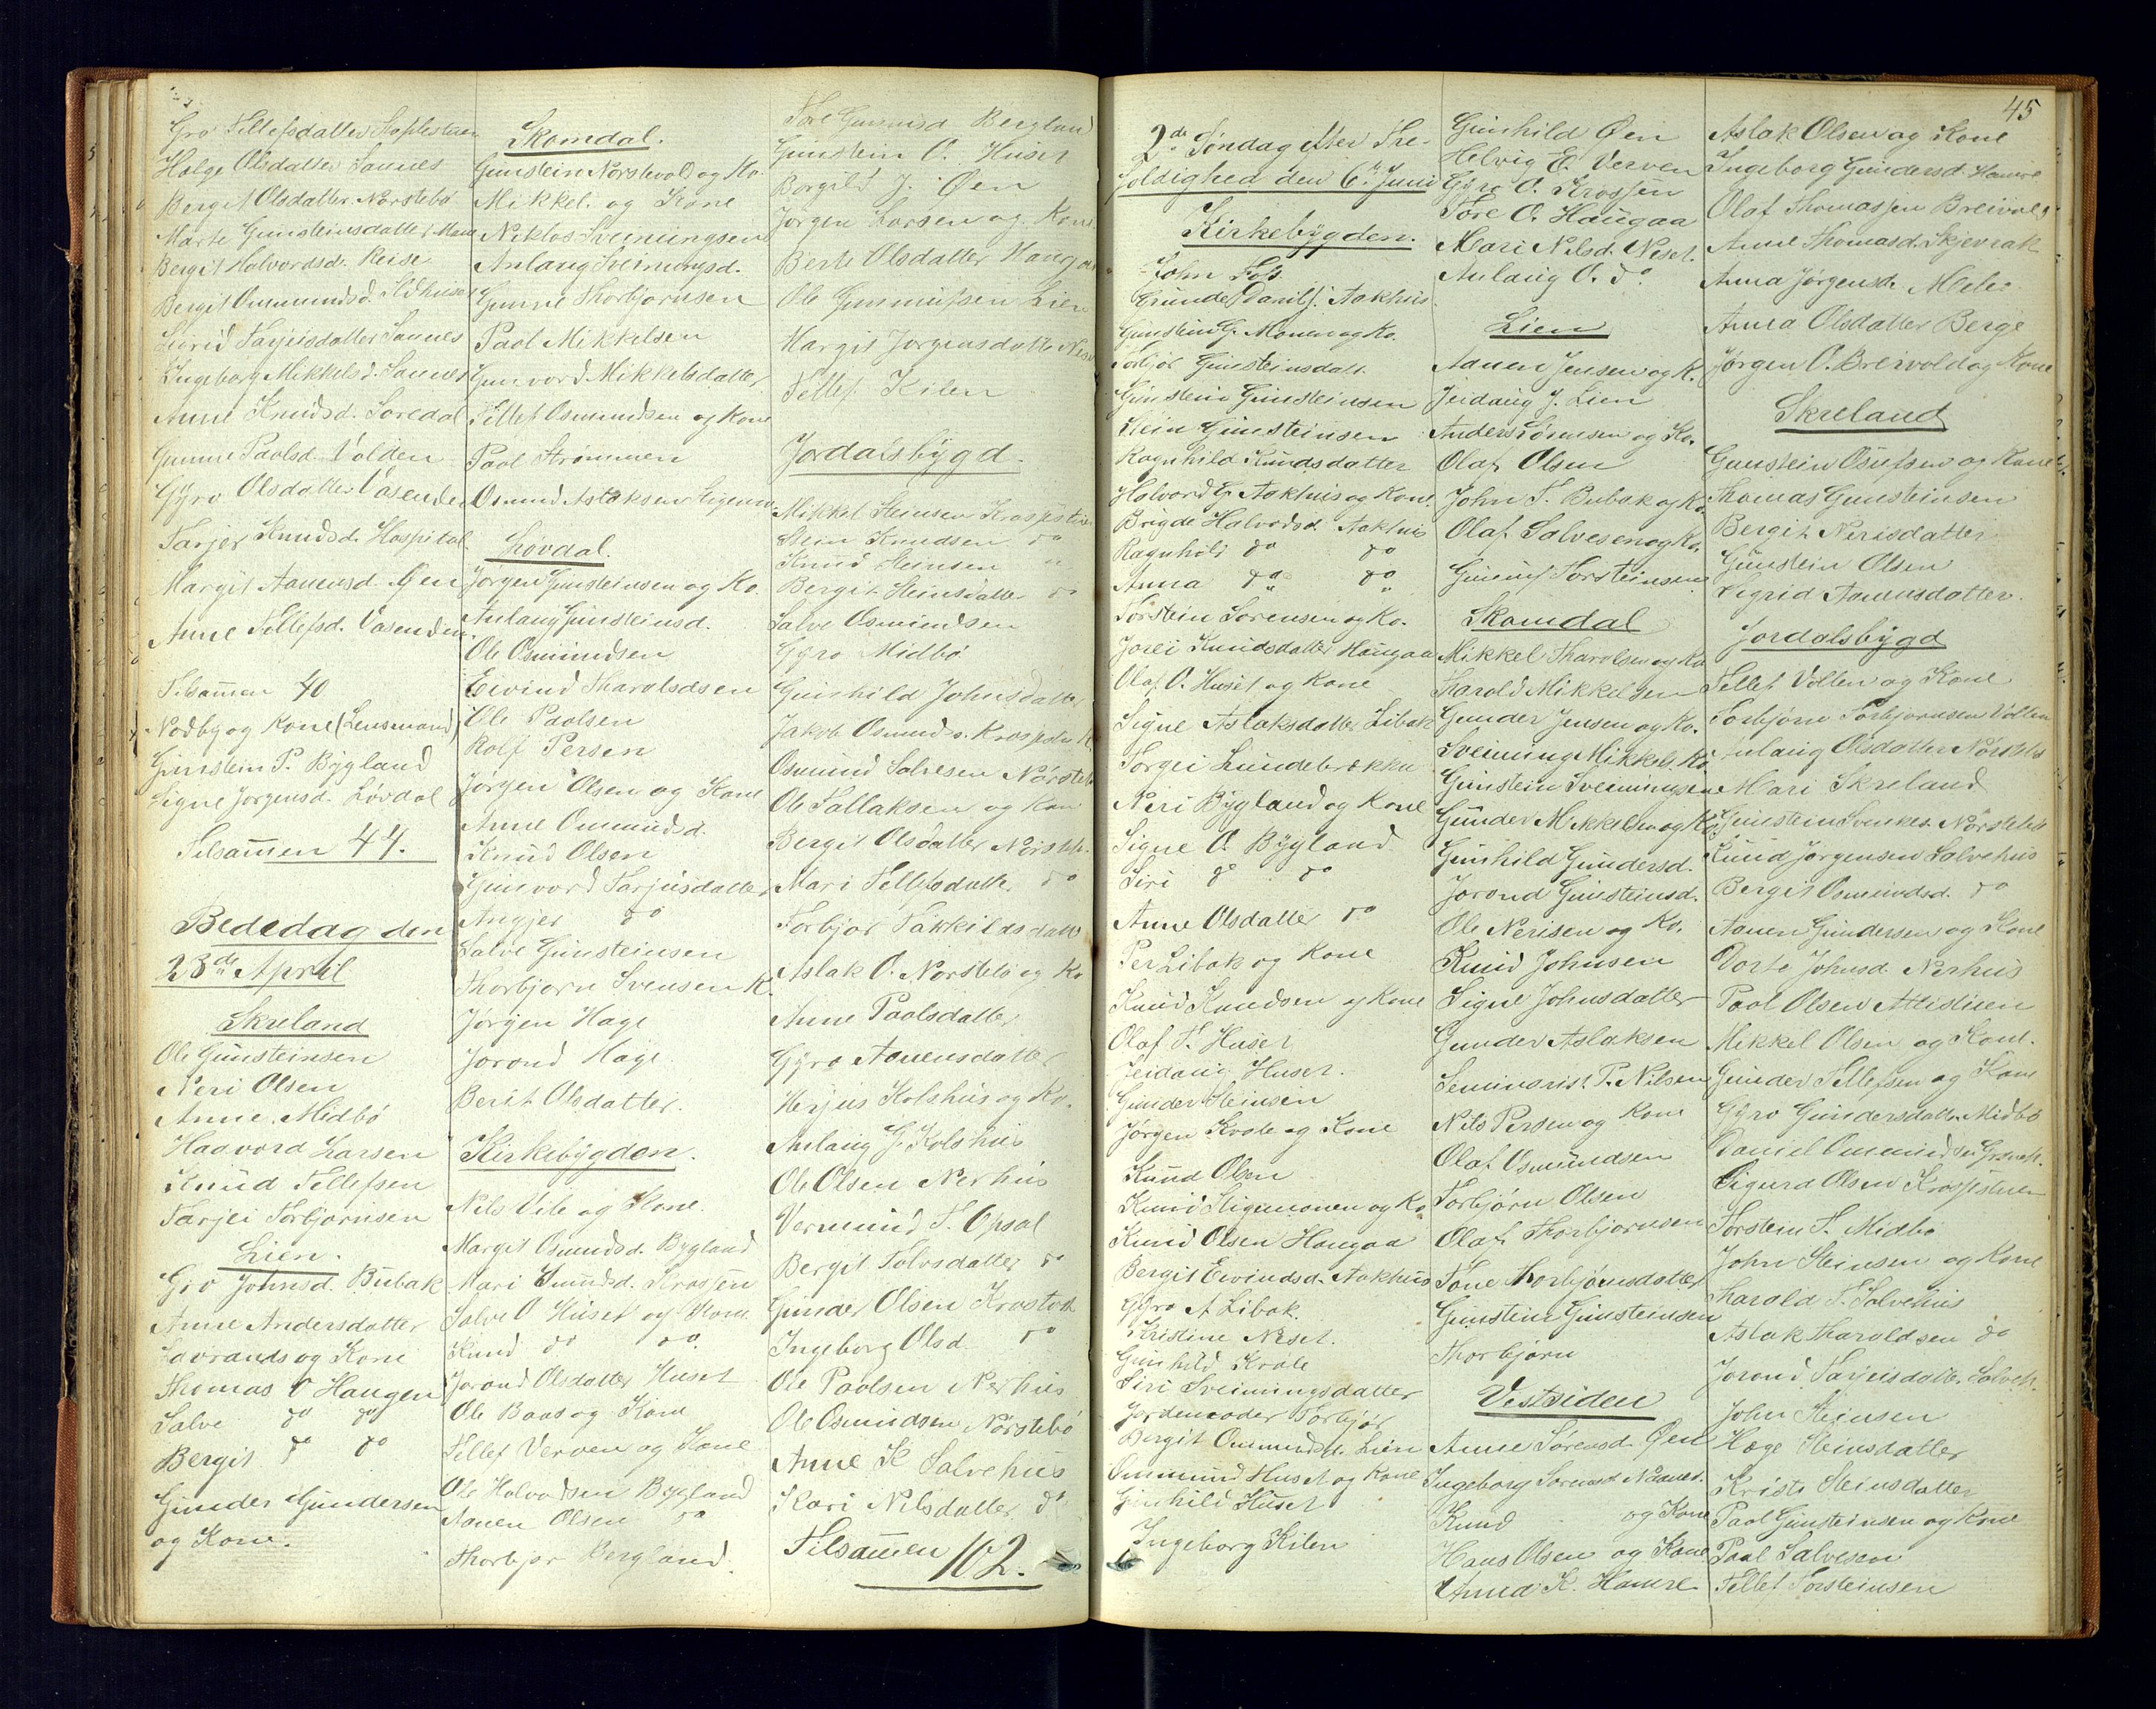 Gro Tellefsdatter
Helge Olsdatter Sannes
Bergit Olsdatter Norstebø
Marte Gunsteinsdatter
Bergit Halvordsd. Reise
Bergit Ommundsd.
Sigrid Tarjeisdatter Sannes
Ingeborg Mikkelsd. Sannes
Anne Knudsd. Soredal
Gunne Paalsd. Volden
Gyro Olsdatter Vasenden
Tarjer Knudsd. Hospital
Margit Aanensd. Øen
Anne Tellefsd. Vasenden
Tilsam̅en 40
Nodby og Kone (Lensmand)
Gunstein P. Bygland
Signe Jorgensd. Løvdal
Tilsam̅en 44.
Bededag den
23de April
Skreland
Ole Gunsteinsen
Neri Olsen
Anne Midbø
Haavord Larsen
Knud Tellefsen
Tarjei Torbjornsen
Lien.
Gro Johnsd. Bubak
Anne Andersdatter
og Kone
Thomas O Haugen
Salve do do
Bergit do do
Gunder Gundersen
og Kone.
Skomdal.
Gunstein Norstevold og Ko.
Mikkel og Kone
Niklos Sveinungsen
Anlaug Sveinungsd.
Gunne Thorbjornsen
Paal Mikkelsen
Gunvord Mikkelsdatter
Tellef Osmundsen og Kone
Paal Strømmen
Osmund Aslaksen
Løvdal.
Jørgen Gunsteinsen og Ko.
Anlaug Gunsteinsd.
Ole Osmundsen
Eivind Tharalsdsen
Ole Paalsen
Rolf Persen
Jørgen Olsen og Kone
Anne Ommundsd.
Knud Olsen
Gunvord Tarjusdatter
Angjer do
Salve Gunsteinsen
Thorbjorn Svensen K.
Jørgen Hage
Jorond Hage
Berit Olsdatter.
Kirkebygden.
Nils Vile og Kone.
Margit Osmundsd. Bygland
Mari
Salve O Huset og Kone
Knud do do
Jorand Olsdatter Huset
Ole Baas og Kone
Tellef Verven og Kone
Ole Halvordsen Bygland
Aanen Olsen do
Thorbjor Bergland.
Tore Gunnusd Bergland
Gunstein O. Huset
Borgild J. Øen
Jørgen Larsen og Kone.
Berte Olsdatter Haugaa
Ole Gunnufsen Lien
Margit Jorgensdatter Neset
Tellef Kilen
Jordalsbygd.
Mikkel Steinsen
Stein Knudsen do
Knud Steinsen
Bergit Steinsdatter do
Salve Osmundsen
Gyro Midbø
Gunhild Johnsdatter
Jakob Osmunds.
Osmund Salvesen Nörstebø
Ole Tallaksen og Kone
Bergit Olsdatter
Mari Tellefsdatter do
Torbjor
Aslak O. Norstebø og Ko
Anne Paalsdatter
Gyro Aanensdatter
Herjus Kolshus og Ko.
Anlaug G. Kolshus
Ole Olsen Nerhus
Vermund T. Opsal
Bergit Tolvsdatter do
Gunder Olsen
Ingeborg Olsd. do
Ole Paalsen Nerhus
Ole Osmundsen Nörstebö
Anne K Salvehus
Kari Nilsdatter do
Tilsam̅en 102.
45
2de Søndag efter Tre-
foldighed den 6te Juni
Kirkebygden.
John Foss
Grunde Danilsj. Aakhus
Gunstein G. Monen og Ko.
Torbjør Gunsteinsdatt.
Gunstein Gunsteinsen
Stein Gunsteinsen
Ragnhild Knudsdatter
Halvord G. Aakhus og Kone.
Brigde Halvordsd. Aakhus
Ragnhild do do
Anna do do
Torstein Sorensen og Ko.
Jorei Knudsdatter Haugaa
Olaf O. Huset og Kone
Signe Aslaksdatter Libak
Torgei Lundebrekka
Neri Bygland og Kone
Signe O. Bygland
Siri do do
Anne Olsdatter do
Per Libak og Kone
Knud Knudsen og Kone
Olaf T. Huset
Jeidaug Huset.
Gunder Steinsen
Jørgen Kvale og Kone
Knud Olsen
Knud Stigemonen og Ko
Knud Olsen Haugaa
Bergit Eivindsd. Aakhus
Gyro A Libak.
Kristine Neset.
Gunhild Kvale
Siri Sveinungsdatter
Jordemoder Torbjør
Bergit Ommundsd. Lien
Ommund Huset og Kone
Gunhild Huset
Ingeborg Kilen
Gunhild Øen
Helvig E. Verven
Gyro O. Krossen
Tore O. Haugaa
Mari Nilsd. Neset.
Anlaug O. do
Lien
Aanen Jensen og K.
Jeidaug J. Lien
Anders Sørensen og Ko.
Olaf Olsen
John T. Bubak og Ko.
Olaf Salvesen og Ko.
Gunuf Torsteinsen
Skomdal
Mikkel Tharalsen og Ko
Tharald Mikkelsen
Gunder Jensen og Ko.
Sveinung Mikkels. Ko.
Gunstein Sveinungsen
Gunder Mikkelsen og Ko.
Gunhild Gundersd.
Jorond Gunsteinsd.
Ole Nerisen og Ko.
Knud Johnsen
Signe Johnsdatter
Gunder Aslaksen
Seminarist P. Nilsen
Nils Persen og Kone
Olaf Osmundsen
Torbjørn Olsen
Olaf Thorbjornsen
Tone Thorbjørnsdatter
Gunstein Gunsteinsen
Thorbjørn
Vestsiden
Anne Sørensd. Øen
Ingeborg Sorensd
Knud og Kone
Hans Olsen og Kone
Anna K. Hamre
Aslak Olsen og Kone
Ingeborg Gundersd. Hamre
Olaf Thomassen Breivold
Anne Thomasd. Skjevrak
Anna Jørgensd.
Anna Olsdatter Berge
Jørgen O. Breivold og Kone
Skreland
Gunstein Osufsen og Kone
Thomas Gunsteinsen
Bergit Nerisdatter
Gunstein Olsen
Sigrid Aanensdatter.
Jordalsbygd
Tellef Vollen og Kone
Torbjørn Torbjornsen Vollen
Anlaug Olsdatter Nörstebö
Mari Skreland
Gunstein Nörstebö
Knud Jørgensen Salvehus
Bergit Osmundsd. do
Aanen Gundersen og Kone
Dorte Johnsd. Nerhus
Paal Olsen
Mikkel Olsen og Kone.
Gunder Tellefsen og Kone
Gyro Gundersdatter Midbö
Daniel Ommundsen
Sigurd Olsen
Torstein T. Midbø
John Steinsen og Kone
Tharald T. Salvehus
Aslak Tharaldsen do
Jorond Tarjeisdatter Salveh.
John Steinsen
Hæge Steinsdatter
Kristi Steinsdatter
Paal Gunsteinsen og Kone
Paal Salvesen
Tellef Torsteinsen